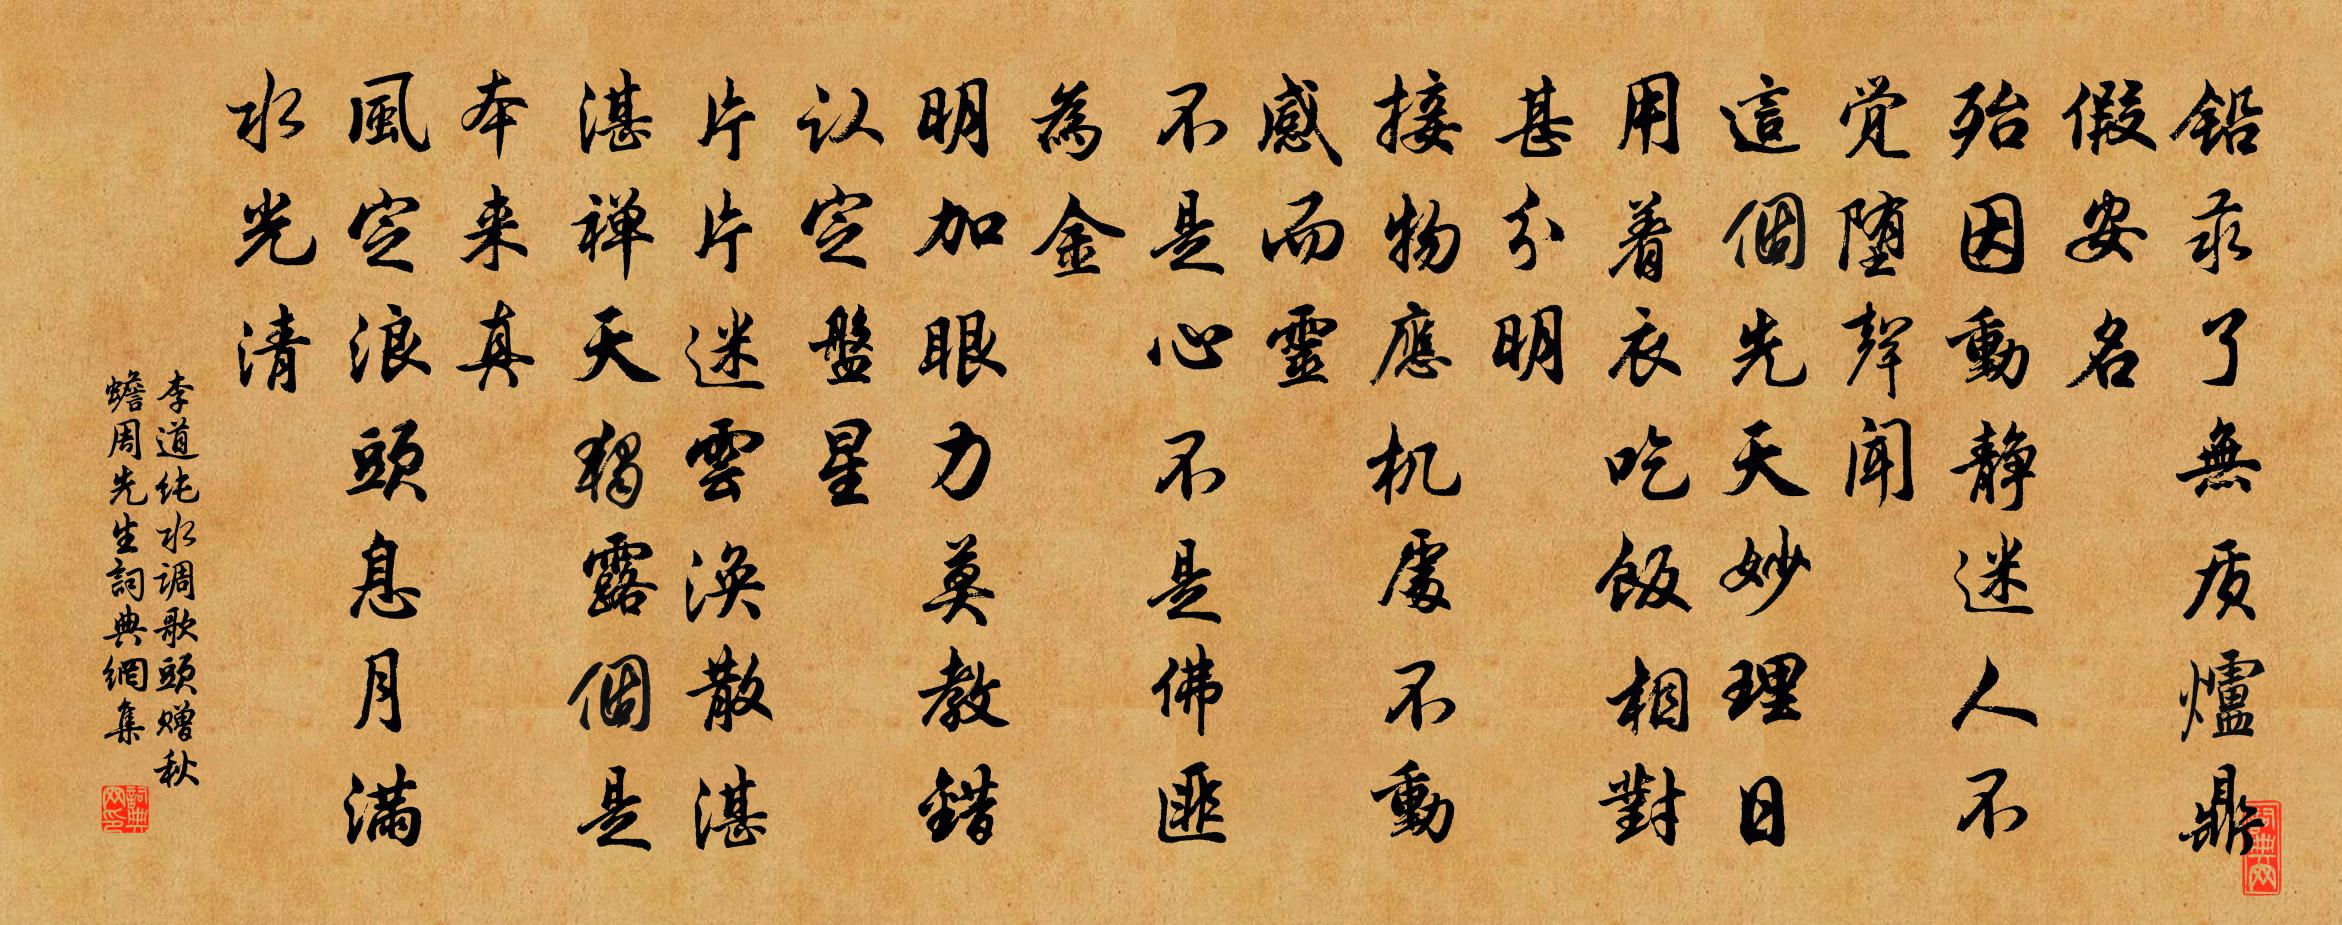 铅汞了無质爐鼎
假安名
殆因動静迷人不
觉堕聲闻
這個先天妙理日
用着衣吃飯相對
甚分明
接物應机處不動
感而靈
不是心不是佛匪
為金
明加眼力莫教錯
认定盤星
片片迷雲涣散湛
湛禅天独露個是
本来真
風定浪頭息月满
水光清
李道纯水调歌頭赠秋
蟾周先生詞典網集
詞典网印
词典网